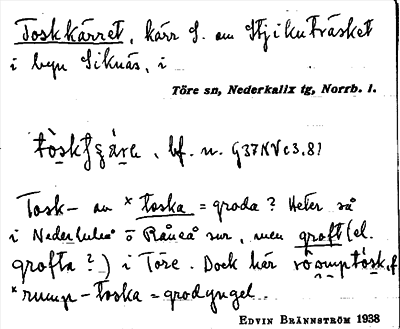 Toskkärret, kärr S. om Stjikuträsket
i byn Siknäs, i
Töre sn, Nederkalix tg, Norrb. l.
bf. n. G37NVc3.81
Tosk- av *toska = groda? Heter så
i Nederluleå o Råneå snr, men groft (el.
grofta?) i Töre. Dock här
*rump-toska = grodyngel.
EDVIN BRÄNNSTRÖM 1938